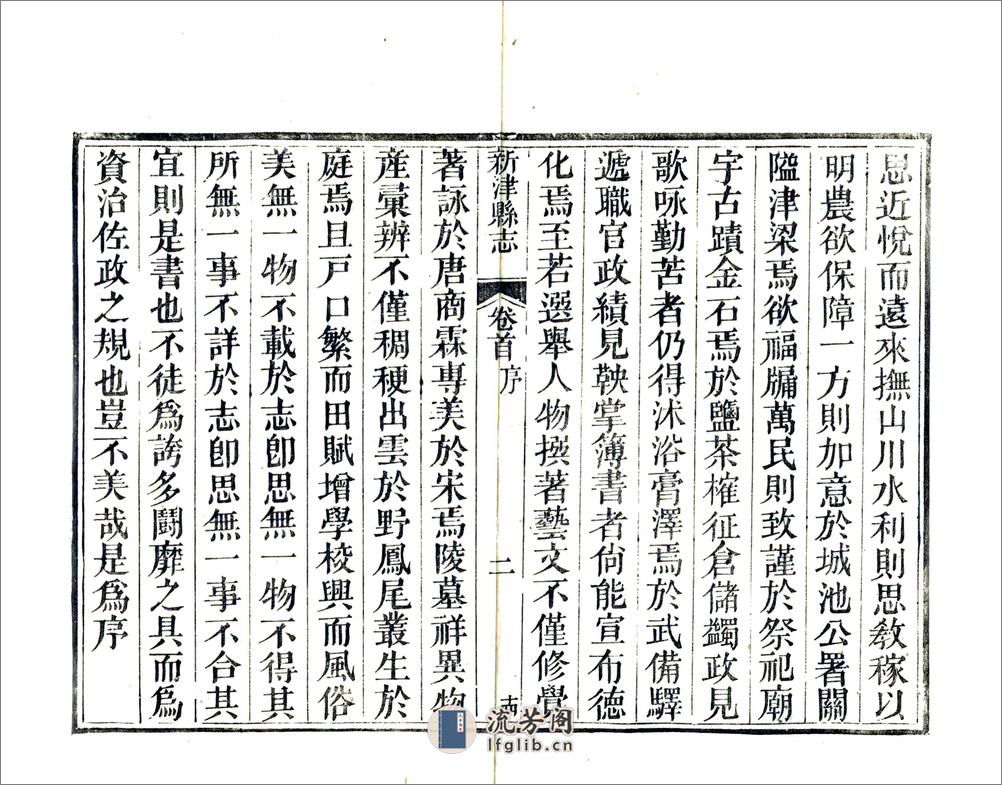 思近悅而遠來撫山川水利則思敎稼以
明農欲保障一方則加意於城池公署關
隘津梁焉欲福牖萬民則致謹於祭祀廟
宇古蹟金石焉於鹽茶榷征倉儲蠲政見
歌咏勤苦者仍得沐浴膏澤焉於武備驛
遞職官政績見鞅掌簿書者尙能宣布德
化焉至若選舉人物撰著藝文不僅修覺
新津縣志
卷首
序
二
著詠於唐商霖專美於宋焉陵墓祥異物
產彙辨不僅稠稉出雲於野鳳尾叢生於
庭焉且戸口繁而田賦增學校興而風俗
美無一物不載於志卽思無一物不得其
所無一事不詳於志卽思無一事不合其
宜則是書也不徒爲誇多鬪靡之具而爲
資治佐政之規也豈不美哉是爲序
流芳阁
lfglib.cn